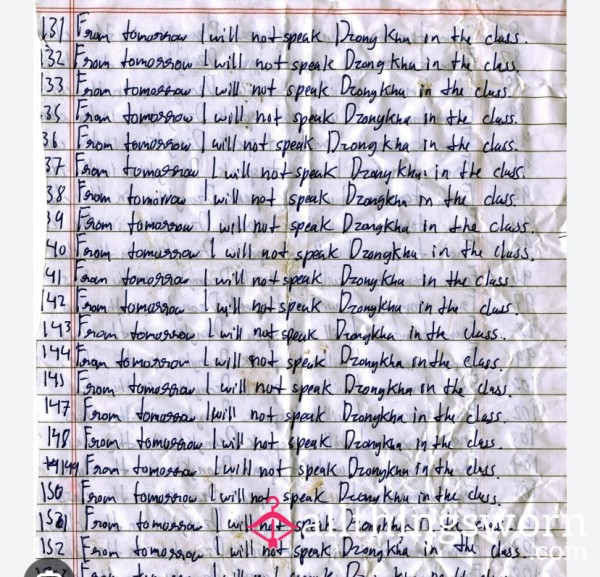 131 From tomorrow I will not speak Dzongkha in the class.
132 From tomorrow I will not speak Dzongkha in the class.
133 From tomorrow I will not speak Dzongkha in the class.
35 From tomorrow I will not speak Dzongkha in the class.
36 From tomorrow I will not speak Dzongkha in the class.
37 From tomorrow I will not speak Dzongkha in the class.
38 From tomorrow I will not speak Dzongkha in the class.
39 From tomorrow I will not speak Dzongkha in the class.
40 From tomorrow I will not speak Dzongkha in the class.
41 From tomorrow I will not speak Dzongkha in the class.
142 From tomorrow I will not speak Dzongkha in the class.
143 From tomorrow I will not speak Dzongkha in the class.
144 From tomorrow I will not speak Dzongkha in the class.
145 From tomorrow I will not speak Dzongkha in the class.
147 From tomorrow I will not speak Dzongkha in the class.
148 From tomorrow I will not speak Dzongkha in the class.
149 From tomorrow I will not speak Dzongkha in the class.
150 From tomorrow I will not speak Dzongkha in the class.
151 From tomorrow I will not speak Dzongkha in the class.
allthingsworn
.com
152 From tomorrow I will not speak Dzongkha in the class.